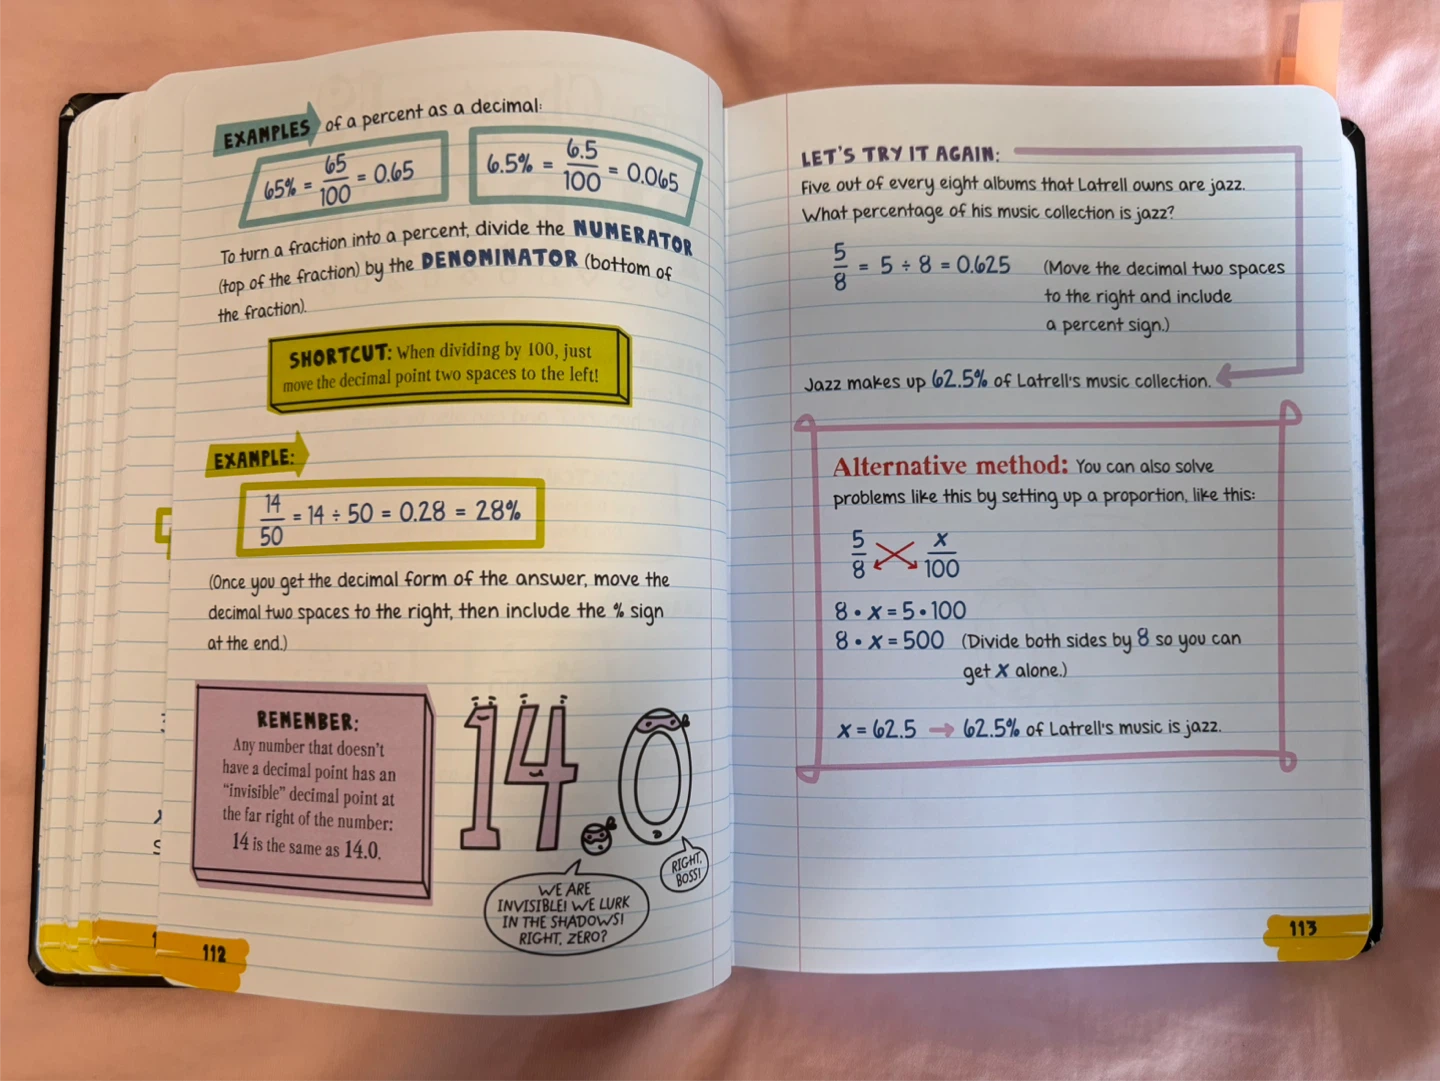 EXAMPLES of a percent as a decimal:
65% = 65/100 = 0.65
6.5% = 6.5/100 = 0.065
To turn a fraction into a percent, divide the NUMERATOR
(top of the fraction) by the DENOMINATOR (bottom of
the fraction).
SHORTCUT: When dividing by 100, just
move the decimal point two spaces to the left!
EXAMPLE:
14/50 = 14 ÷ 50 = 0.28 = 28%
(Once you get the decimal form of the answer, move the
decimal two spaces to the right, then include the % sign
at the end.)
REMEMBER:
Any number that doesn't
have a decimal point has an
"invisible" decimal point at
the far right of the number:
14 is the same as 14.0.
14.0
WE ARE
INVISIBLE! WE LURK
IN THE SHADOWS!
RIGHT, ZERO?
RIGHT,
BOSS!
112
LET'S TRY IT AGAIN:
Five out of every eight albums that Latrell owns are jazz.
What percentage of his music collection is jazz?
5/8 = 5 ÷ 8 = 0.625 (Move the decimal two spaces
to the right and include
a percent sign.)
Jazz makes up 62.5% of Latrell's music collection.
Alternative method: You can also solve
problems like this by setting up a proportion, like this:
5/8 x/100
8 • x = 5 • 100
8 • x = 500 (Divide both sides by 8 so you can
get x alone.)
x = 62.5 → 62.5% of Latrell's music is jazz.
113